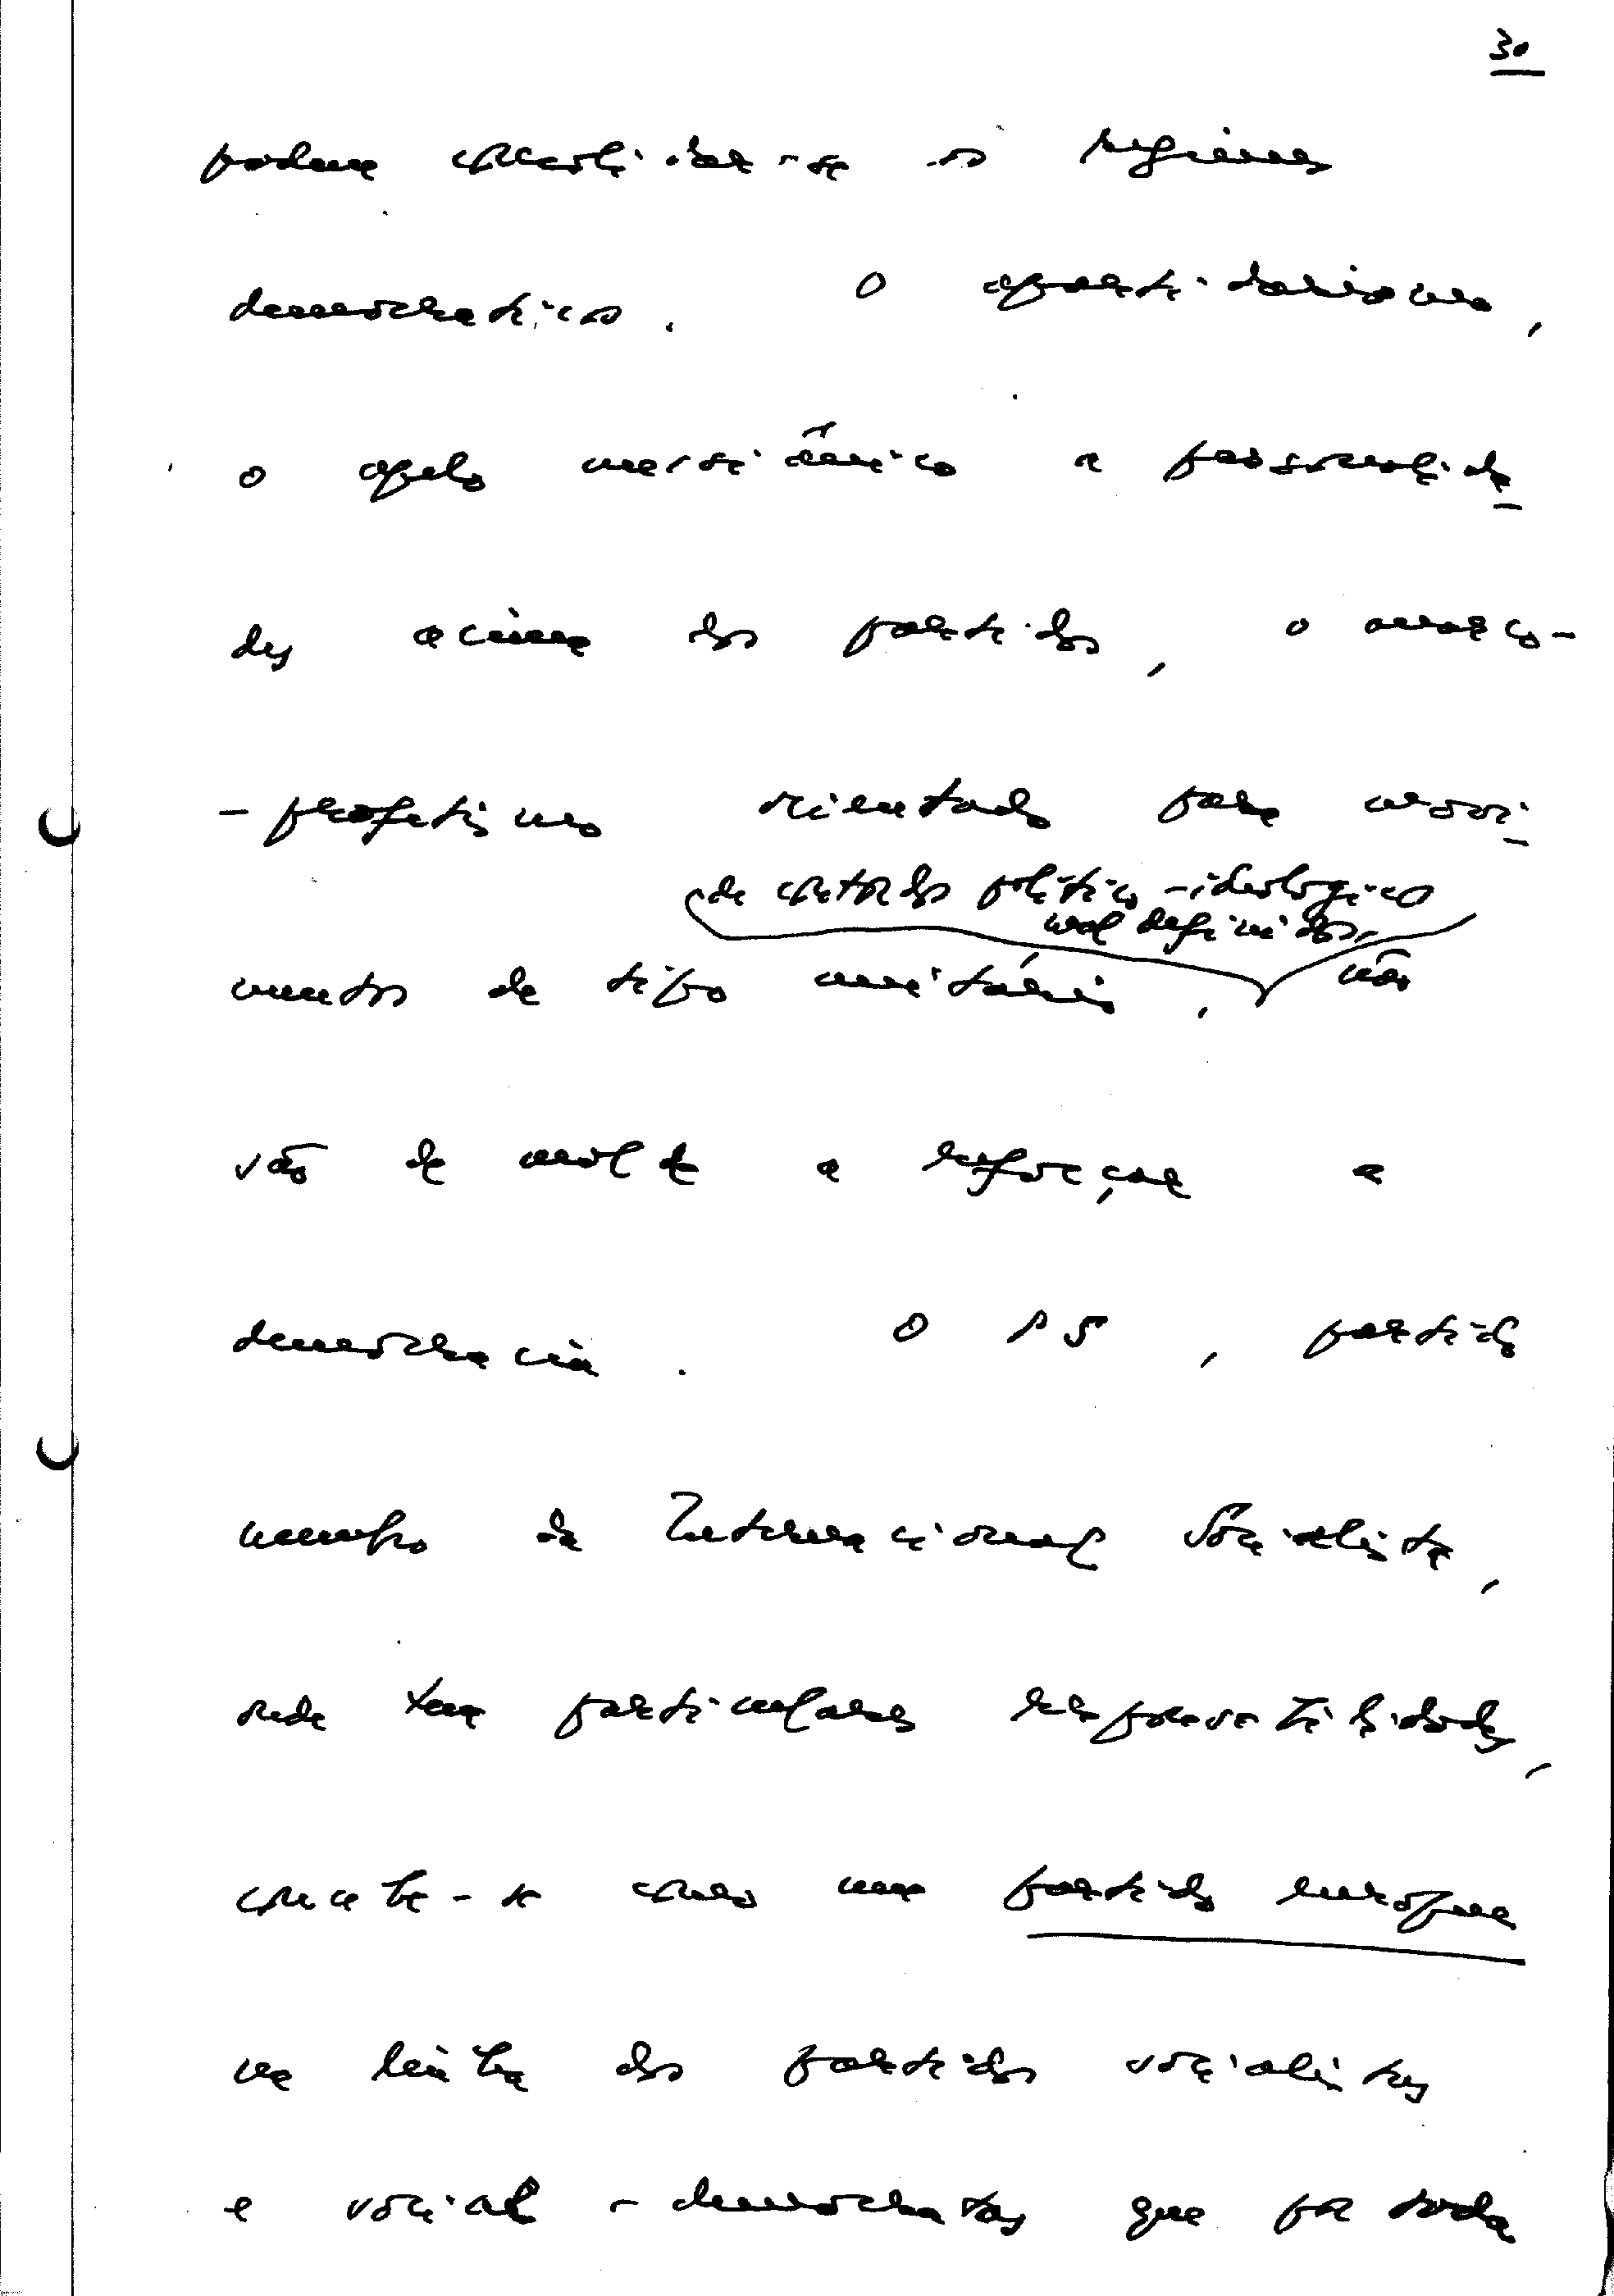 30
podem consolidar-se os regimes
democráticos. O apartidarismo,
o apelo messiânico a personalida
des acima dos partidos, o
-profetismo orientado para movi
de contornos político-ideológicos
mal definidos,
mentos de tipo unitário, não
vão de molde a reforçar a
democracia. O PS, partido
membro da Internacional Socialista,
onde tem particulares responsabilidades,
concebe-se como um partido europeu
na linha dos partidos socialistas
e social-democratas que por toda